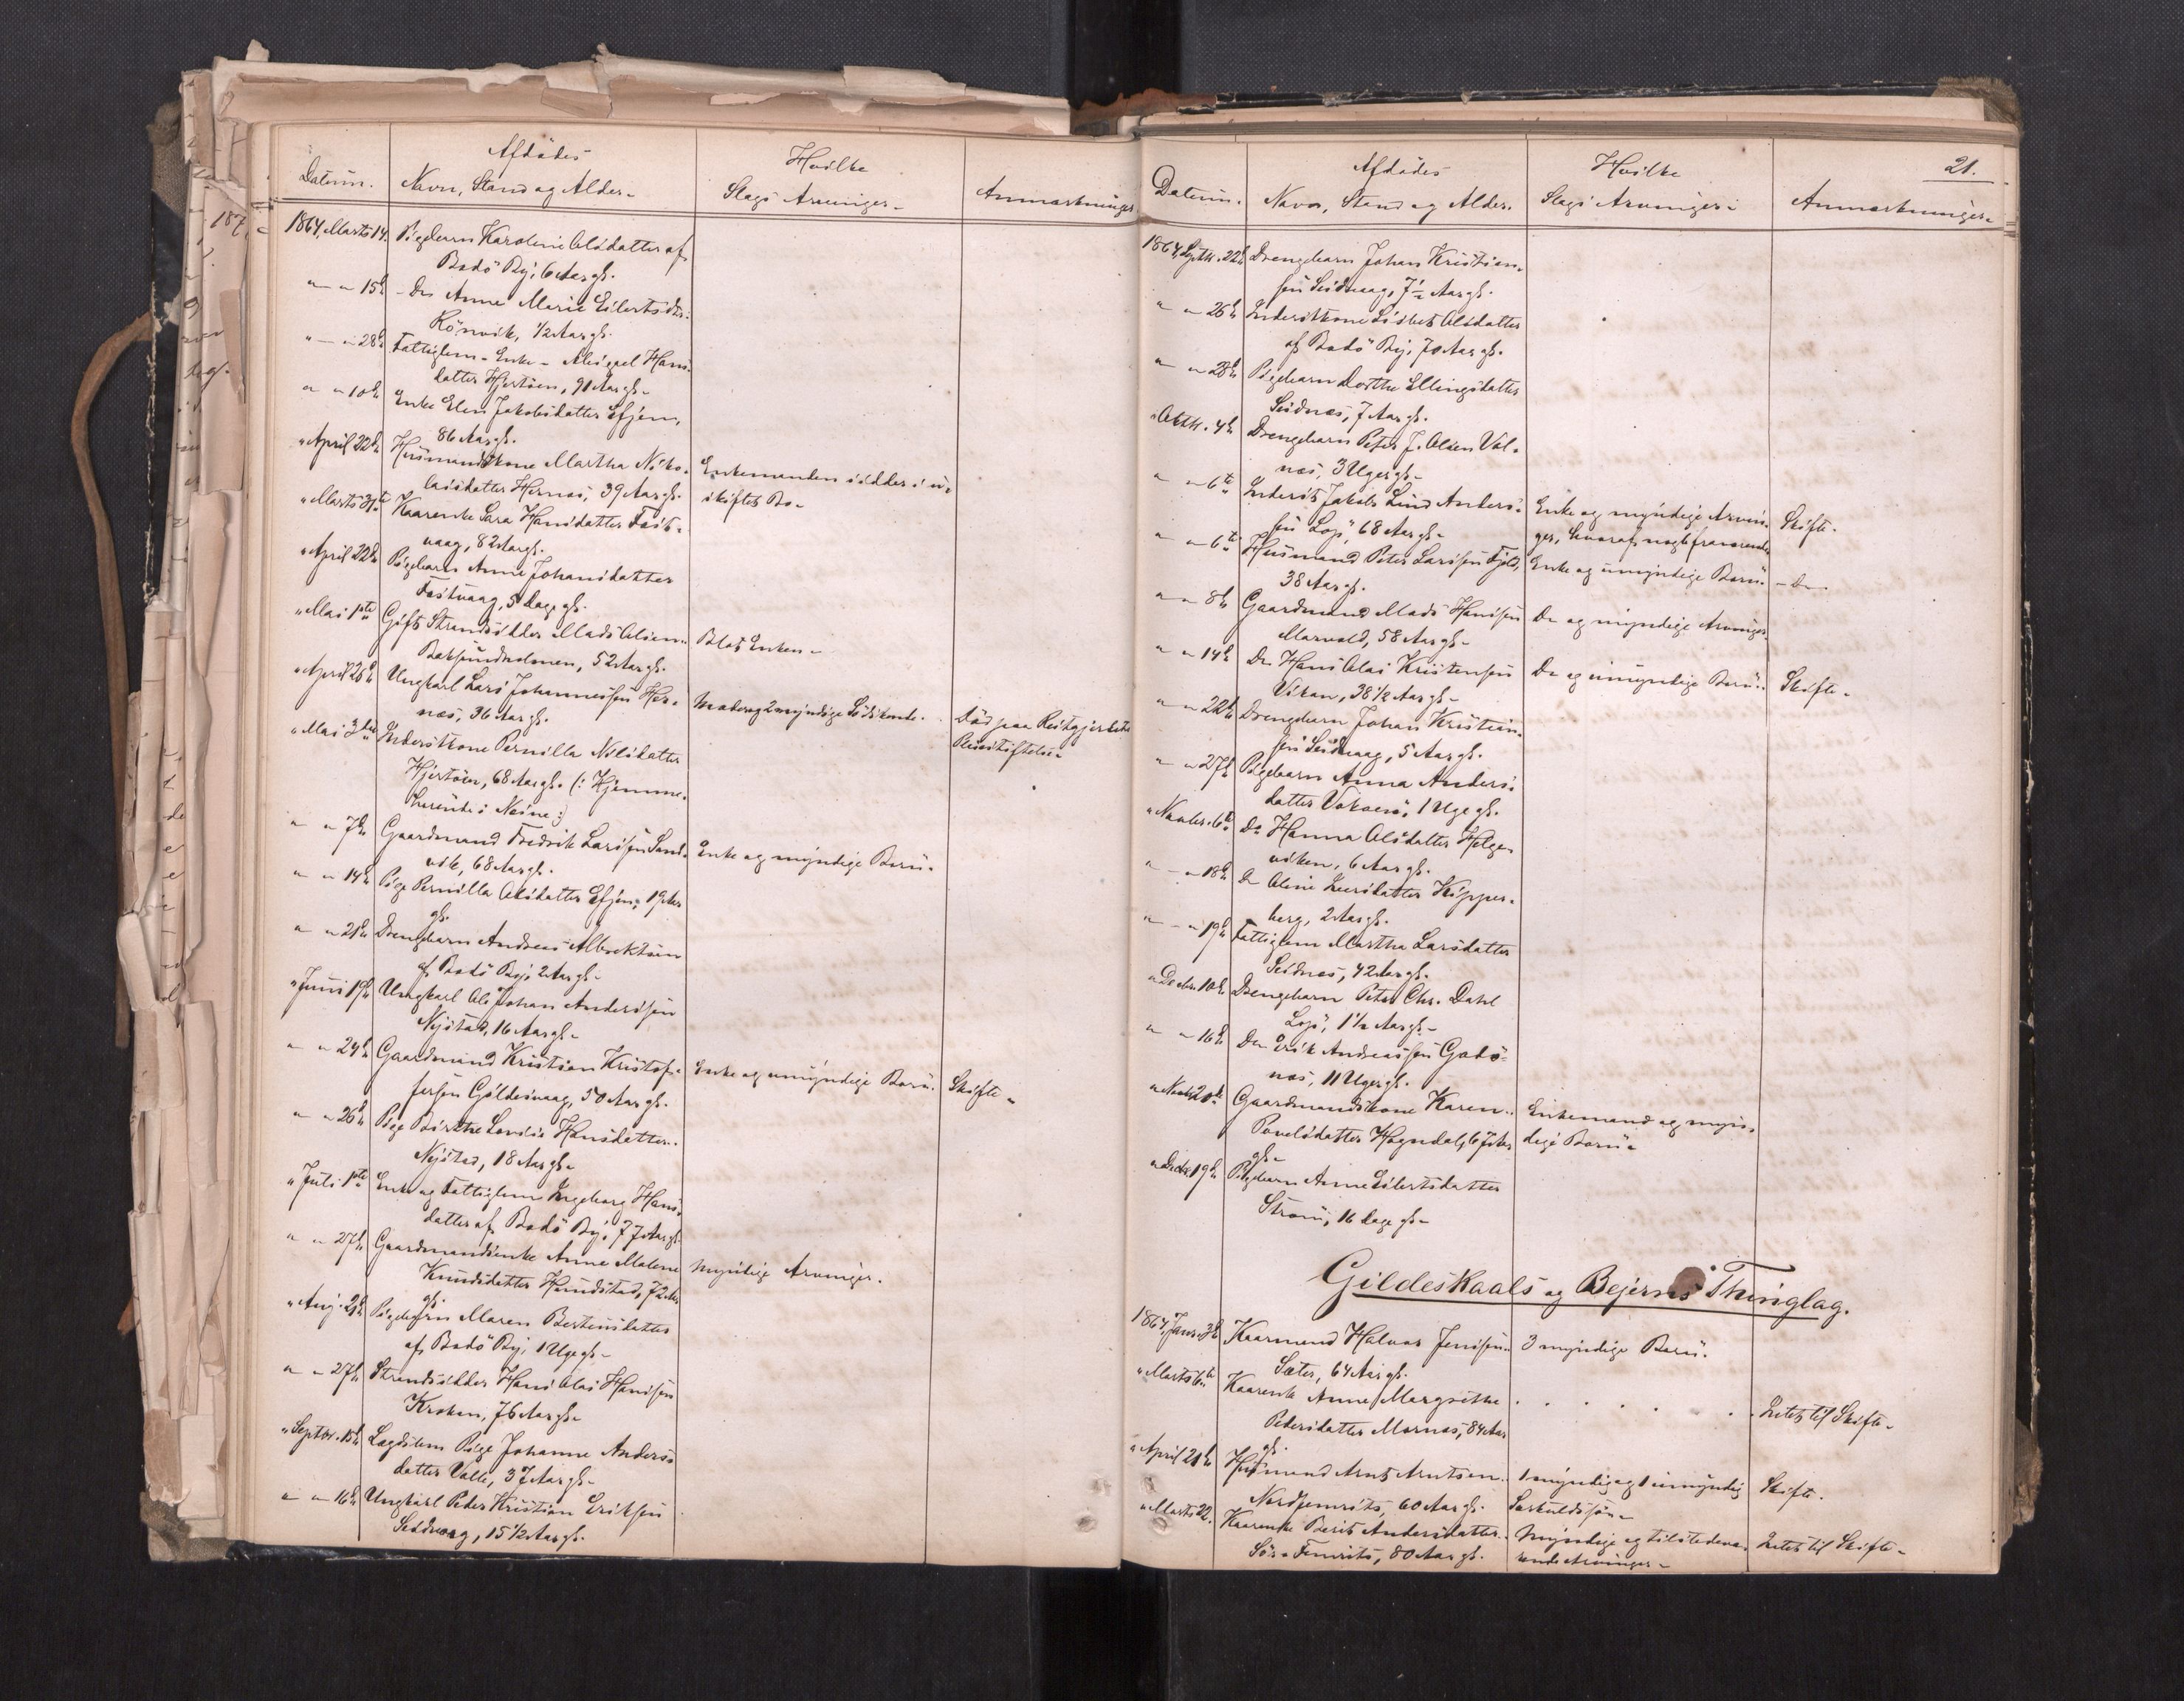 Afdødes
Hvilke
Datum.
Navn, Stand og Alder-
Slags Arvinger-
Anmærkninger
1864, Marts 14.
Pigebarn Karoline Olsdatter af
Bodø By, 6 Aar gl.
" " 15de
- Do Anne Marie Eilertsdtr:
Rønvik, 1/2 Aar gl.
" - " 28de
Fattiglem - Enke - Abigael Hans-
datter Hjertøen, 91 Aar gl-
" " 10de
Enke Elen Jakobsdatter
86 Aar gl.
" April 22de
Husmandskone Martha Niko-
laisdatter Hernes, 39 Aar gl.
Enkemanden sidder i u-
skiftet Bo-
" Marts 31te
Kaarenke Sara Hansdatter Fast-
vaag, 82 Aar gl.
" April 22de
Pigebarn Anne Johansdatter
Fastvaag, 5 Dage gl.
" Mai 1ste
Gift Strandsidder Mads Olsen
52 Aar gl.
Blot Enken-
" April 26de
Ungkarl Lars Johannessen Her-
nes, 36 Aar gl.
Moder og 2 myndige Sødskende.
Død paa Reitgjerdets
Pleiestiftelse
" Mai 3die
Inderstkone Pernilla Nilsdatter
Hjertøen, 68 Aar gl. (: Hjemme-
hørende i
" " 7de
Gaardmand Fredrik Larssen Sand-
vik, 68 Aar gl.
Enke og myndige Børn-
" " 14de
Pige Pernilla Olsdatter 19 Aar
gl.
" " 21de
Drengebarn Andreas Albrektsen
af Bodø By, 2 Aar gl-
" Juni 19de
Ungkarl Ole Johan Anderssen
Nystad, 16 Aar gl-
" " 24de
Gaardmand Kristian Kristof-
fersen Gildesvaag, 50 Aar gl.
Enke og umyndige Børn.
Skifte-
" " 26de
Pige Birthe Lovise Hansdatter
Nystad, 18 Aar gl-
" Juli 1ste
Enke og Fattiglem Ingeborg Hans-
datter af Bodø By, 77 Aar gl-
" " 27de
Gaardmandsenke Anne Malene
Knudsdatter Hundstad, 72 Aar
gl.
Myndige Arvinger.
" Aug. 21de
Pigebarn Maren Bertinsdatter
af Bodø By, 1 Uge gl-
" " 27de
Strandsidder Hans Olai Hanssen
Kroken, 76 Aar gl-
" Septbr. 15de
Lægdslem Pige Johanne Anders-
datter Valle, 37 Aar gl-
" " 16de
Ungkarl Peder Kristian Eriksen
Seidvaag, 15 1/2 Aar gl.
21.
Afdødes
Hvilke
Datum.
Navn, Stand og Alder.
Slags Arvinger-
Anmærkninger-
1864, Septbr. 22de
Drengebarn Johan Kristian-
sen Seidvaag, 7 1/2 Aar gl.
" " 26de
Inderstkone Lisbet Olsdatter
af Bodø By, 70 Aar gl.
" " 28de
Pigebarn Dorthe Ellingsdatter
Seidnes, 7 Aar gl.
" Oktbr. 4de
Drengebarn Peter J. Olsen Val-
nes, 3 Uger gl-
" " 6te
Inderst Jakob Lund Anders-
sen Løp, 68 Aar gl-
Enke og myndige Arvin-
ger, hvoraf nogle fraværende
Skifte.
" " 6te
Husmand Peter Larssen Fjeld,
38 Aar gl.
Enke og umyndige Børn-
- Do -
" " 8de
Gaardmand Mads Hanssen
Marvold, 58 Aar gl-
Do og myndige Arvinger
" " 14de
Do Hans Olai Kristensen
Vikan, 38 1/2 Aar gl-
Do og umyndige Børn-
Skifte-
" " 22de
Drengebarn Johan Kristian-
sen Seidvaag, 5 Aar gl.
" " 27de
Pigebarn Anna Anders-
datter 1 Uge gl.
" Novbr. 6te
Do Hanna Olsdatter Helge-
viken, 6 Aar gl.
" - " 18de
Do Oline Larsdatter Kipper-
berg, 2 Aar gl.
" - " 19de
Fattiglem Martha Larsdatter
Seidnes, 42 Aar gl.
" Decbr. 10de
Drengebarn Peter Chr. Dahl
Løp, 1 1/2 Aar gl-
" " 16de
Do Erik Andreassen Godø-
nes, 11 Uger gl.
" Novbr. 20de
Gaardmandskone Karen
Povelsdatter Hogndal, 67 Aar
gl-
Enkemand og myn-
dige Børn-
" Decbr. 19de
Pigebarn Anne Eilertsdatter
Strøm, 16 Dage gl-
Gildeskaals og Bejerns Thinglag.
1864, Janr. 3de
Kaarmand Halvor Jenssen
Sæter, 64 Aar gl.
3 myndige Børn.
" Marts 6te
Kaarenke Anne Margrethe
Pedersdatter Mornes, 84 Aar
gl.
Intet til Skifte-
" April 21de
Husmand Arnt Arntsen
60 Aar gl.
1 myndig og 1 umyndig
Særkuldssøn-
Skifte.
" Marts 22.
Kaarenke Berit Andersdatter
80 Aar gl.
Myndige og tilstedevæ-
rende Arvinger-
Intet til Skifte-